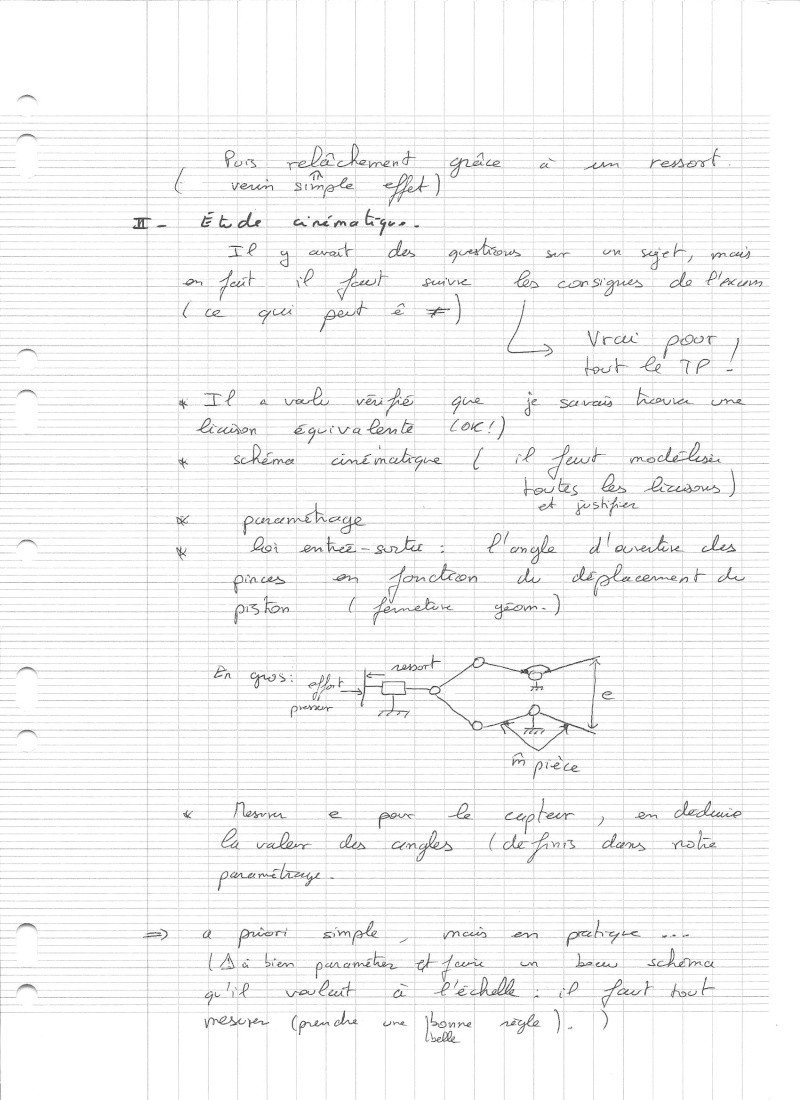 Puis relâchement grâce à un ressort.
( verin simple effet)
II - Étude cinématique.
Il y avait des questions sur un sujet, mais
en fait il faut suivre les consignes de l'exam
( ce qui peut ê ≠)
Vrai pour
tout le TP !
* Il a voulu vérifié que je savais trouver une
liaison équivalente (OK!)
* schéma cinématique ( il faut modéliser
toutes les liaisons)
et justifier
* paramétrage
* loi entrée-sortie : l'angle d'ouverture des
pinces en fonction du déplacement du
piston ( fermeture géom.)
En gros: effort presseur
ressort
e
m̂ pièce
* Mesurer e pour le capteur, en déduire
la valeur des angles (définis dans notre
paramétrage.
⇒ a priori simple, mais en pratique ...
(⚠ à bien paramétrer et faire un beau schéma
qu'il voulait à l'échelle : il faut tout
mesurer (prendre une bonne règle ). )
belle